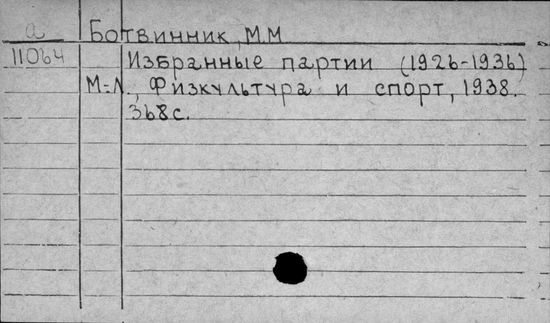 а
Ботвинник, М.М
11064
Избранные партии (1926-1936)
М.-Л., Физкультура и спорт, 1938.
368с.